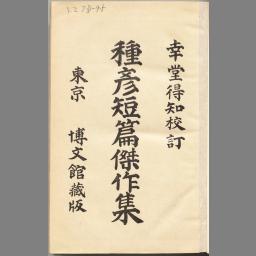 幸堂得知校訂
種彦短篇傑作集
東京 博文館藏版